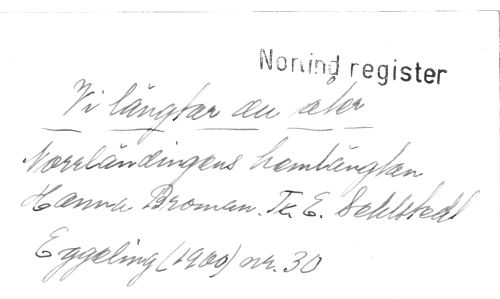 Norlind register
Vi längtar än åter
Norrländingens hemlängtan
Hanna Broman. Tr. E. Sehlstedt
Eggeling (1900) nr. 30